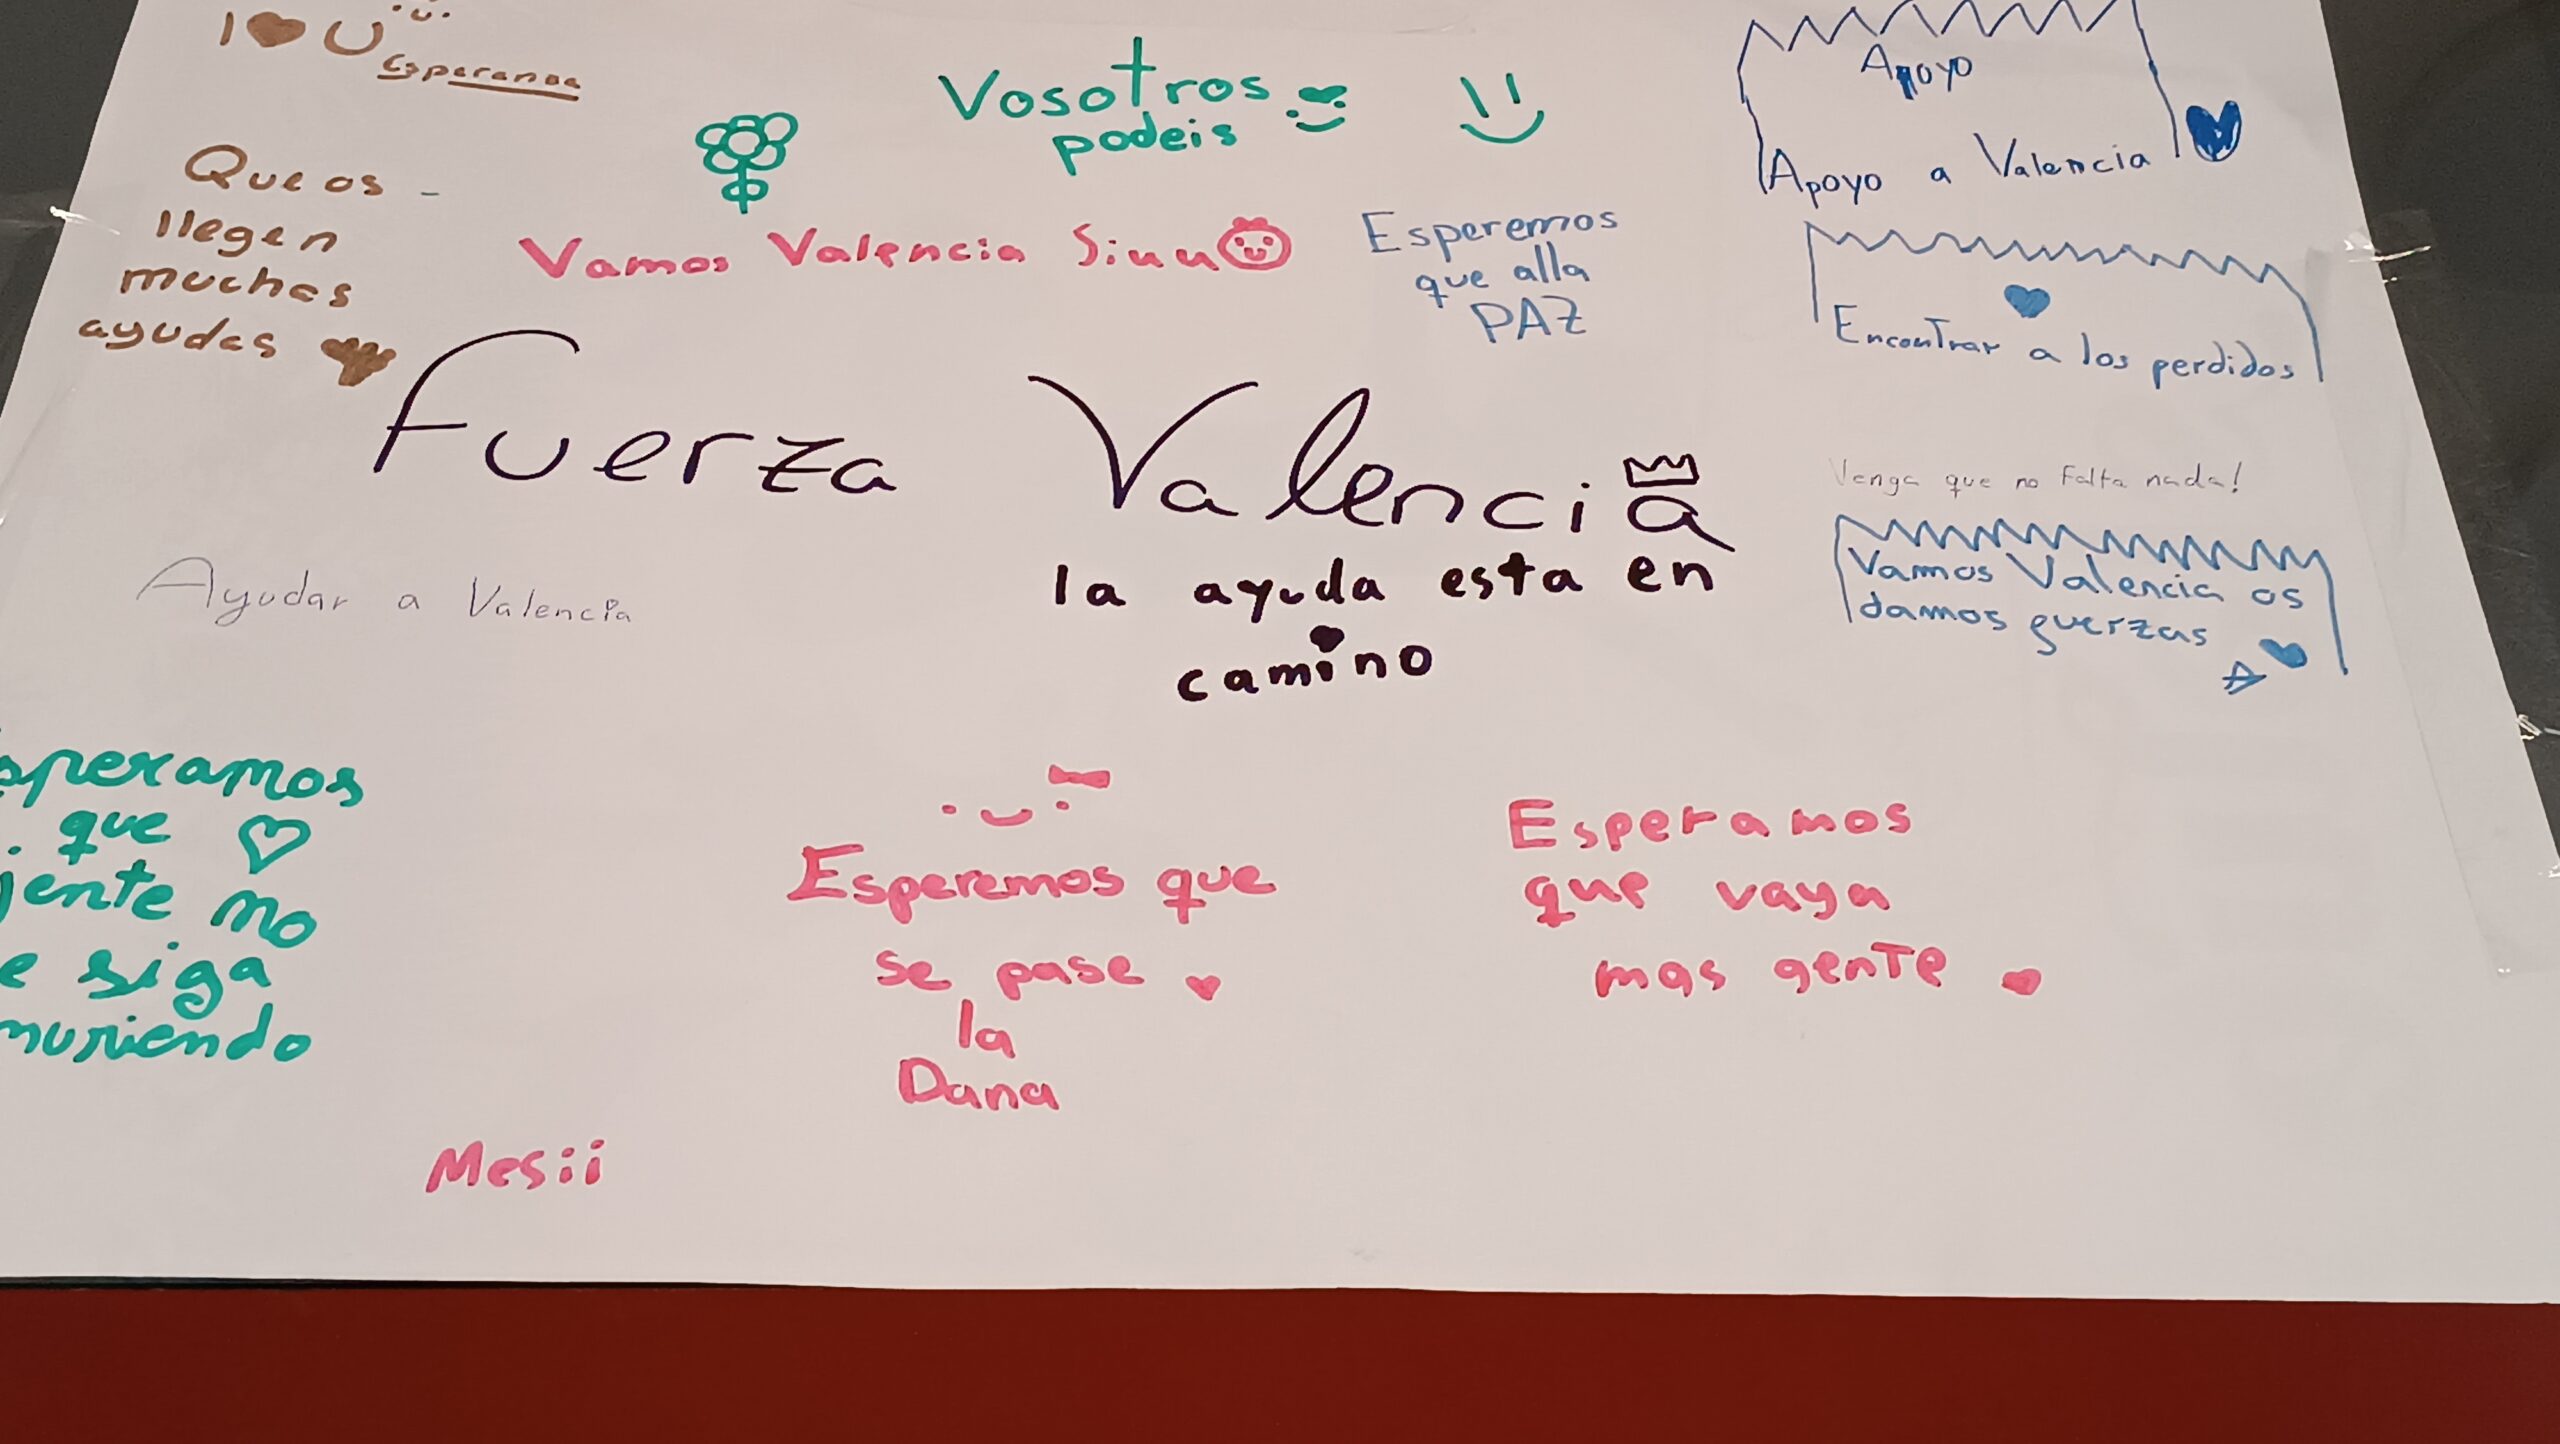 I ❤ U
Vosotros
podeis
Que os -
llegen
muchas
ayudas
Vamos Valencia Siuu
Esperemos
que alla
PAZ
Apoyo
Apoyo a Valencia
Encontrar a los perdidos
Fuerza Valencia
la ayuda esta en
camino
Venga que no Falta nada!
Vamos Valencia os
damos fuerzas
A
Ayudar a Valencia
speramos
que
jente no
e siga
muriendo
Esperemos que
se pase
la
Dana
Esperamos
que vaya
mas gente
Mesii